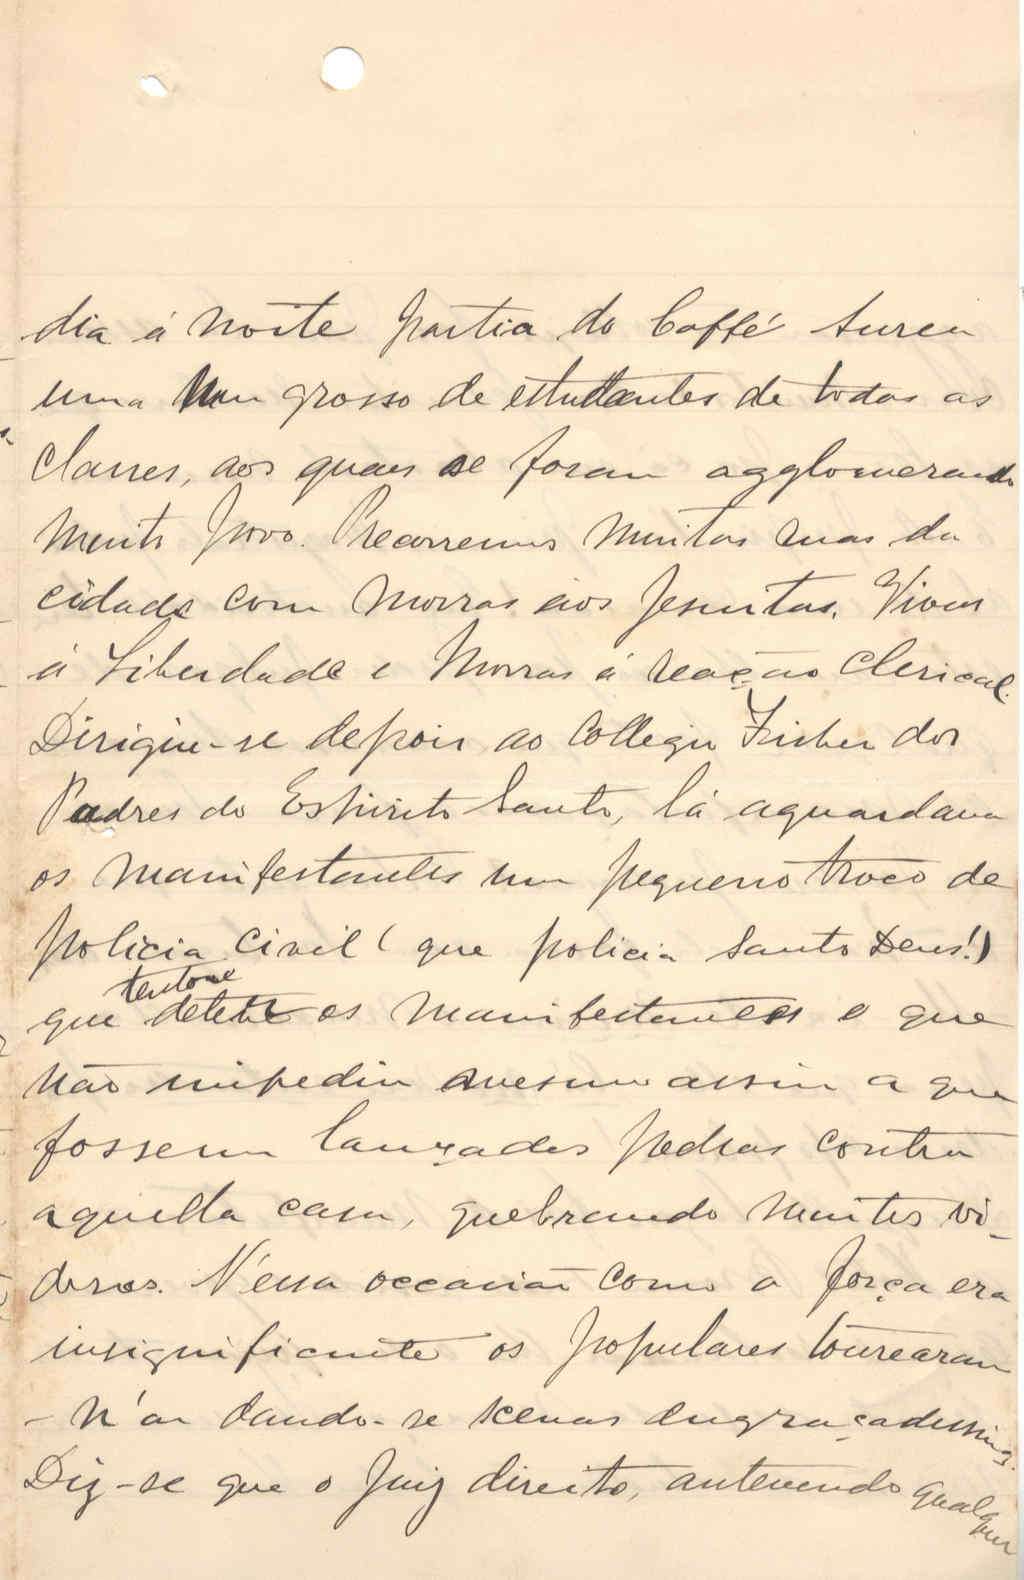 dia á noite partia do Caffé Aurea
uma grosso de estudantes de todas as
classes, aos quaes se foram agglomerando
muito povo. Precorremos muitas ruas da
cidade com Morras aos Jesuitas, Vivas
á Liberdade e Morras á reação clerical.
Dirigiu-se depois ao Collegio Fisher dos
Padres do Espirito Santo, lá aguardava
os manifestantes um pequeno troço de
policia civil (que policia Santo Deus!)
tentou
que deter os manifestantes e que
não impediu mesmo assim a que
fossem lançadas pedras contra
aquella casa, quebrando muitos vi-
dros. N'essa occasião como a força era
insignificante os populares tourearam
-n'a dando-se scenas engraçadissimas.
Diz-se que o Juiz direito, antevendo qualquer